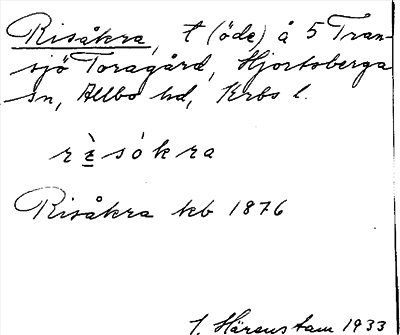 Risåkra, t (öde) å 5 Tran-
sjö Toragård, Hjortsberga
sn, Allbo hd, Krbs l.
rὲsókra
Risåkra kb 1876
J. Härenstam 1933